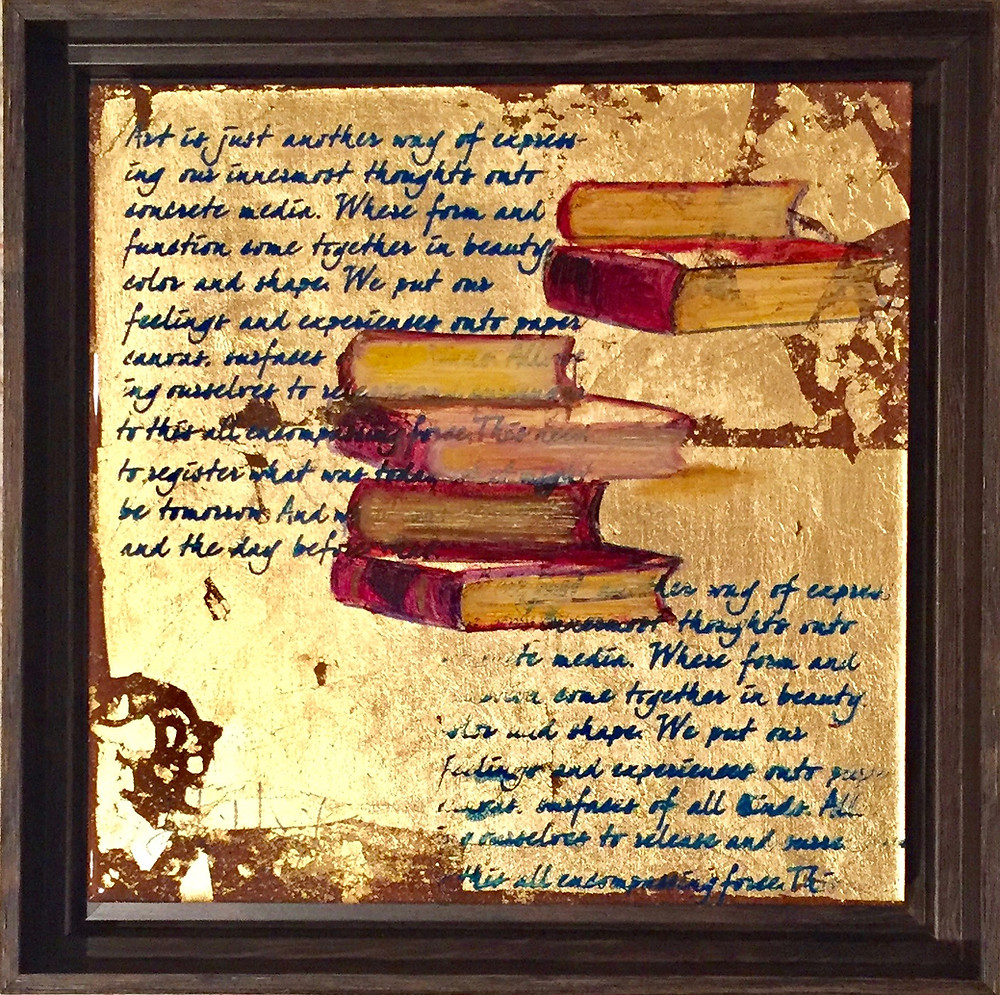 Art is just another way of express-
ing our innermost thoughts onto
concrete media. Where form and
function come together in beauty
color and shape. We put our
feelings and experiences onto paper
canvas. surfaces All
ing ourselves to
to this all encompassing force. This need
to register what was today, what might
be tomorrow. And
and the day before
way of express
innermost thoughts onto
media. Where form and
come together in beauty
color and shape. We put our
Feelings and experiences onto
canvas. surfaces of all kinds. All
ourselves to release and
this all encompassing force. Thi